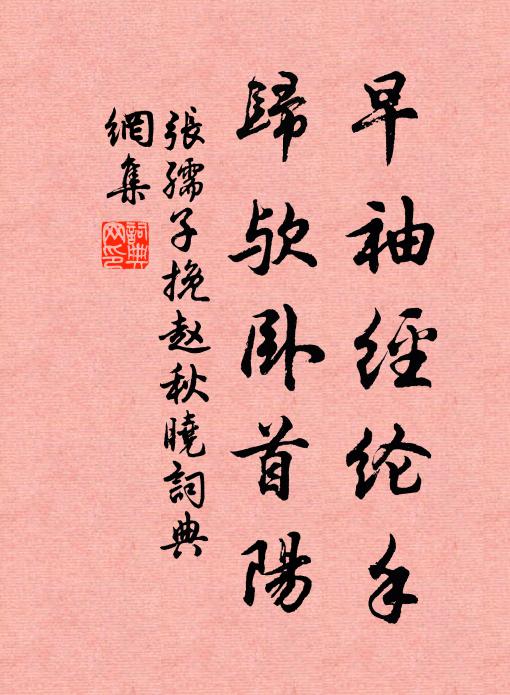 早袖經纶手
歸欤卧首陽
張孺子挽赵秋曉詞典
網集
詞典网印